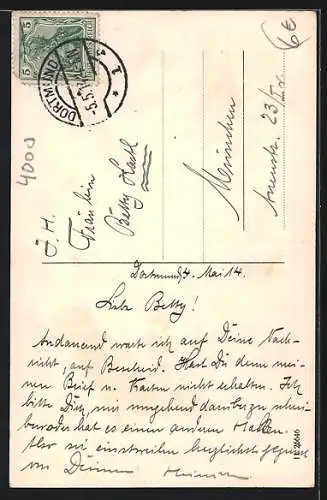 5 5
DORTMUND
-5.5.14
* 1 e
6€
4000
I. H.
Fräulein
Betty Hartl
München
23/II r.
Dortmund, 4. Mai 14.
Liebe Betty!
Andauernd warte ich auf Deine Nach-
richt, auf Bescheid. Hast Du denn mei-
nen Brief u. Karten nicht erhalten. Ich
bitte Dich, mir umgehend darüber zu schrei-
ben oder hat es einen anderen Haken.
Also sei einstweilen herzlichst gegrüsst
von Deinem Heinrich